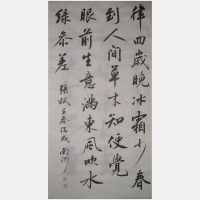 律回歲晚冰霜少春
到人間草木知便覺
眼前生意滿東風吹水
綠參差 張栻立春偶成